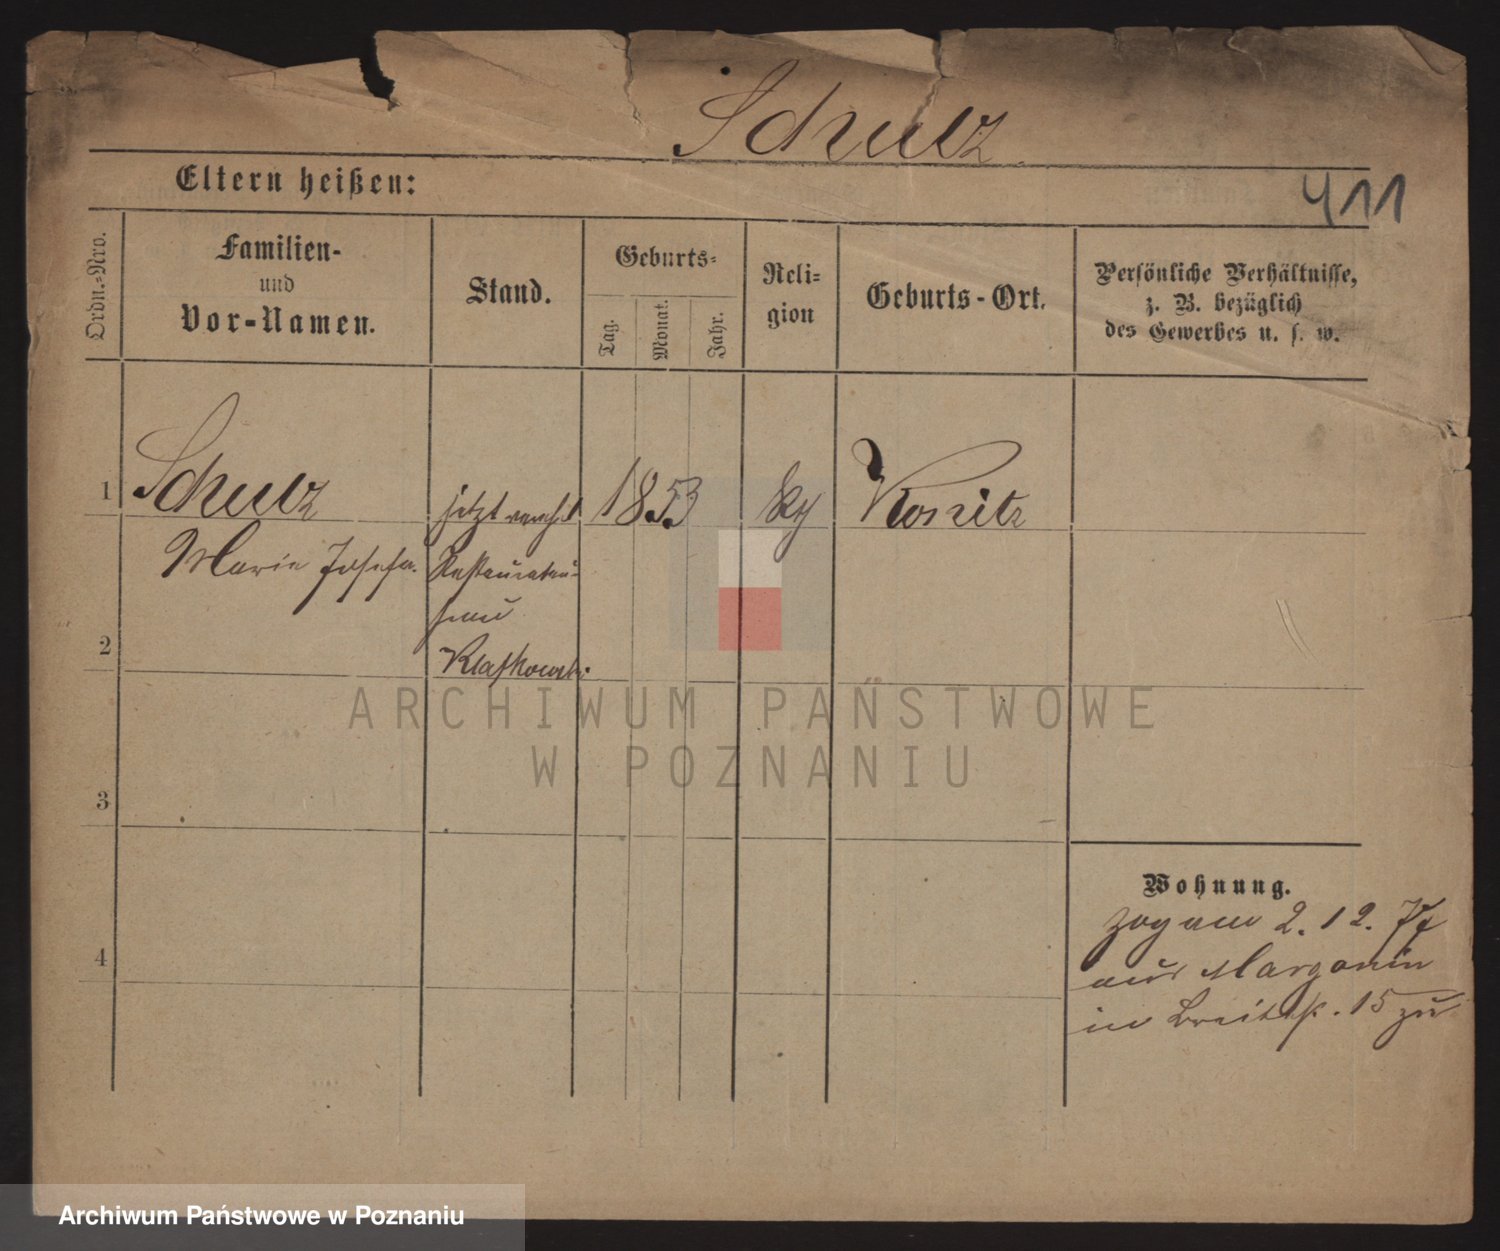 Schulz
Eltern heißen:
411
Ordn.-Nro.
Familien-
und
Vor-Namen.
Stand.
Geburts-
Tag.
Monat.
Jahr.
Reli-
gion
Geburts-Ort.
Persönliche Verhältnisse,
z. B. bezüglich
des Gewerbes u. s. w.
1
Schulz
jetzt
1853
Konitz
Marie Josefa.
Restaurateur-
frau
2
ARCHIWUM PAŃSTWOWE
W POZNANIU
3
Wohnung.
zog am 2. 12. 77
4
aus Margonin
in Breitestr. 15 zu
Archiwum Państwowe w Poznaniu